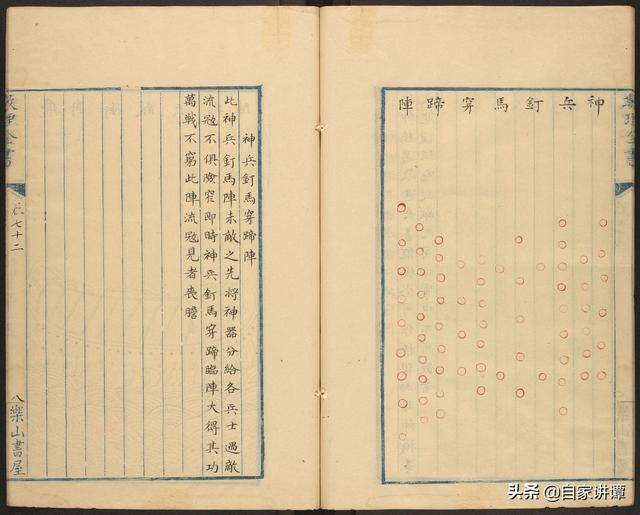 神兵釘馬穿蹄陣
神兵釘馬穿蹄陣
此神兵釘馬陣未敵之先將神器分給各兵士遇敵
流寇不俱險窄即時神兵釘馬穿蹄臨陣大得其功
萬戰不窮此陣流寇見者喪膽
卷七十二
八樂山書屋
头条 @自家讲谭